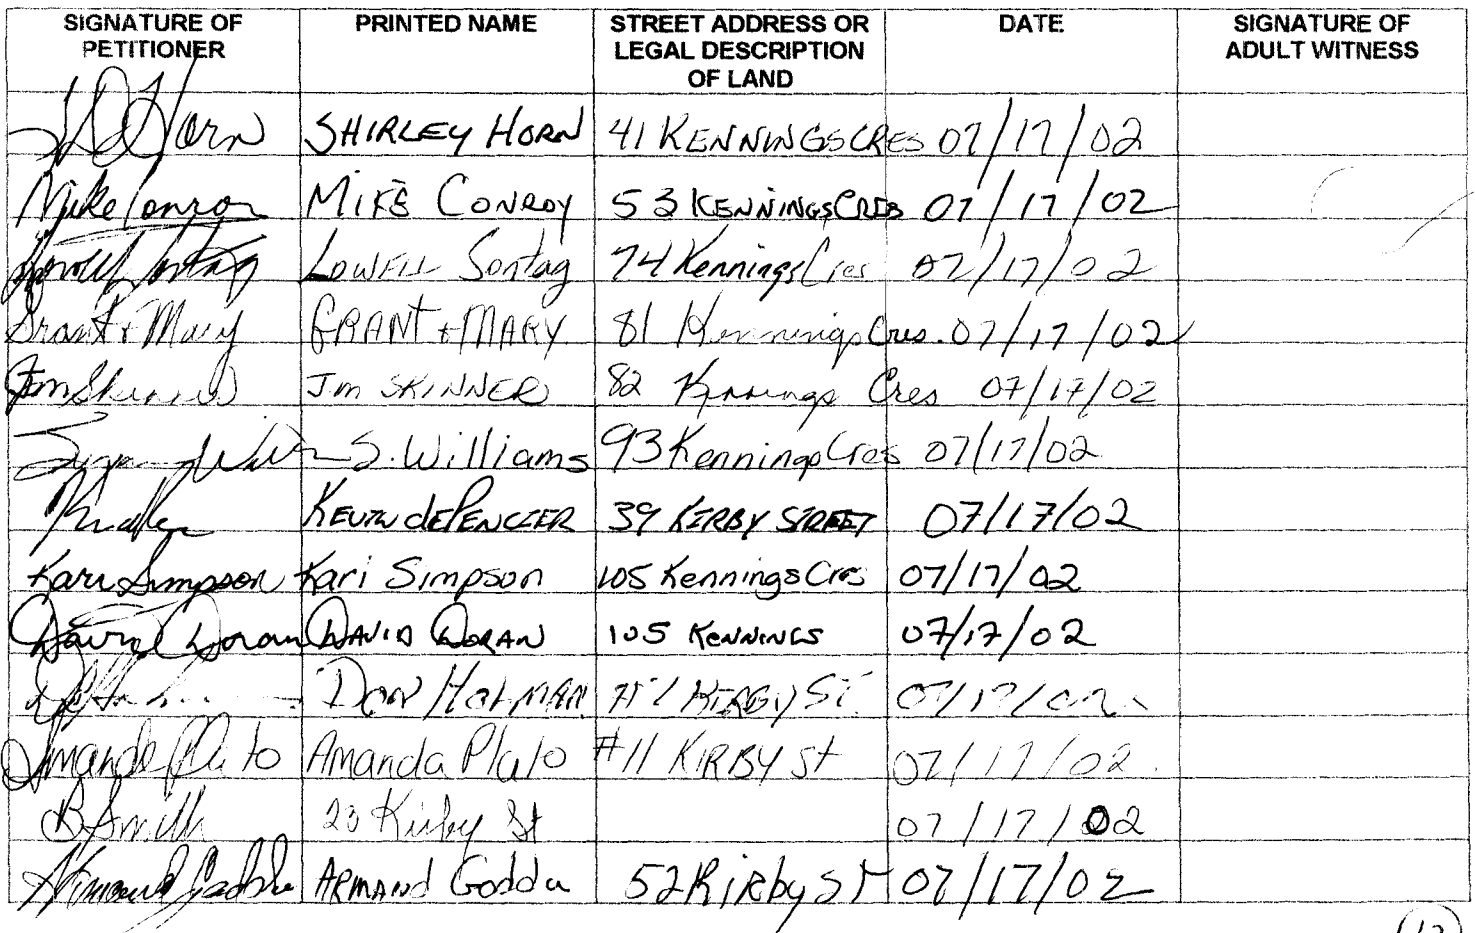 SIGNATURE OF PETITIONER PRINTED NAME STREET ADDRESS OR LEGAL DESCRIPTION OF LAND DATE SIGNATURE OF ADULT WITNESS
S D Horn SHIRLEY HORN 41 KENNINGS CRES 07/17/02
Mike Conroy MIKE CONROY 53 KENNINGS CRES 07/17/02
Lowell Sontag LOWELL Sontag 74 Kennings Cres 07/17/02
Grant + Mary GRANT + MARY 81 Kennings Cres. 07/17/02
Jim Skinner Jim SKINNER 82 Kennings Cres 07/17/02
S. Williams 93 Kennings Cres 07/17/02
KEVIN dEPENCIER 39 KIRBY STREET 07/17/02
Kari Simpson Kari Simpson 105 Kennings Cres 07/17/02
David Doran DAVID DORAN 105 KENNINGS 07/17/02
DON HOLMAN KIRBY ST. 07/17/02
Amanda Plato Amanda Plato #11 KIRBY St 07/17/02
B Smith 23 Kirby St 07/17/02
Armand Godda ARMAND Godda 52 Kirby St 07/17/02